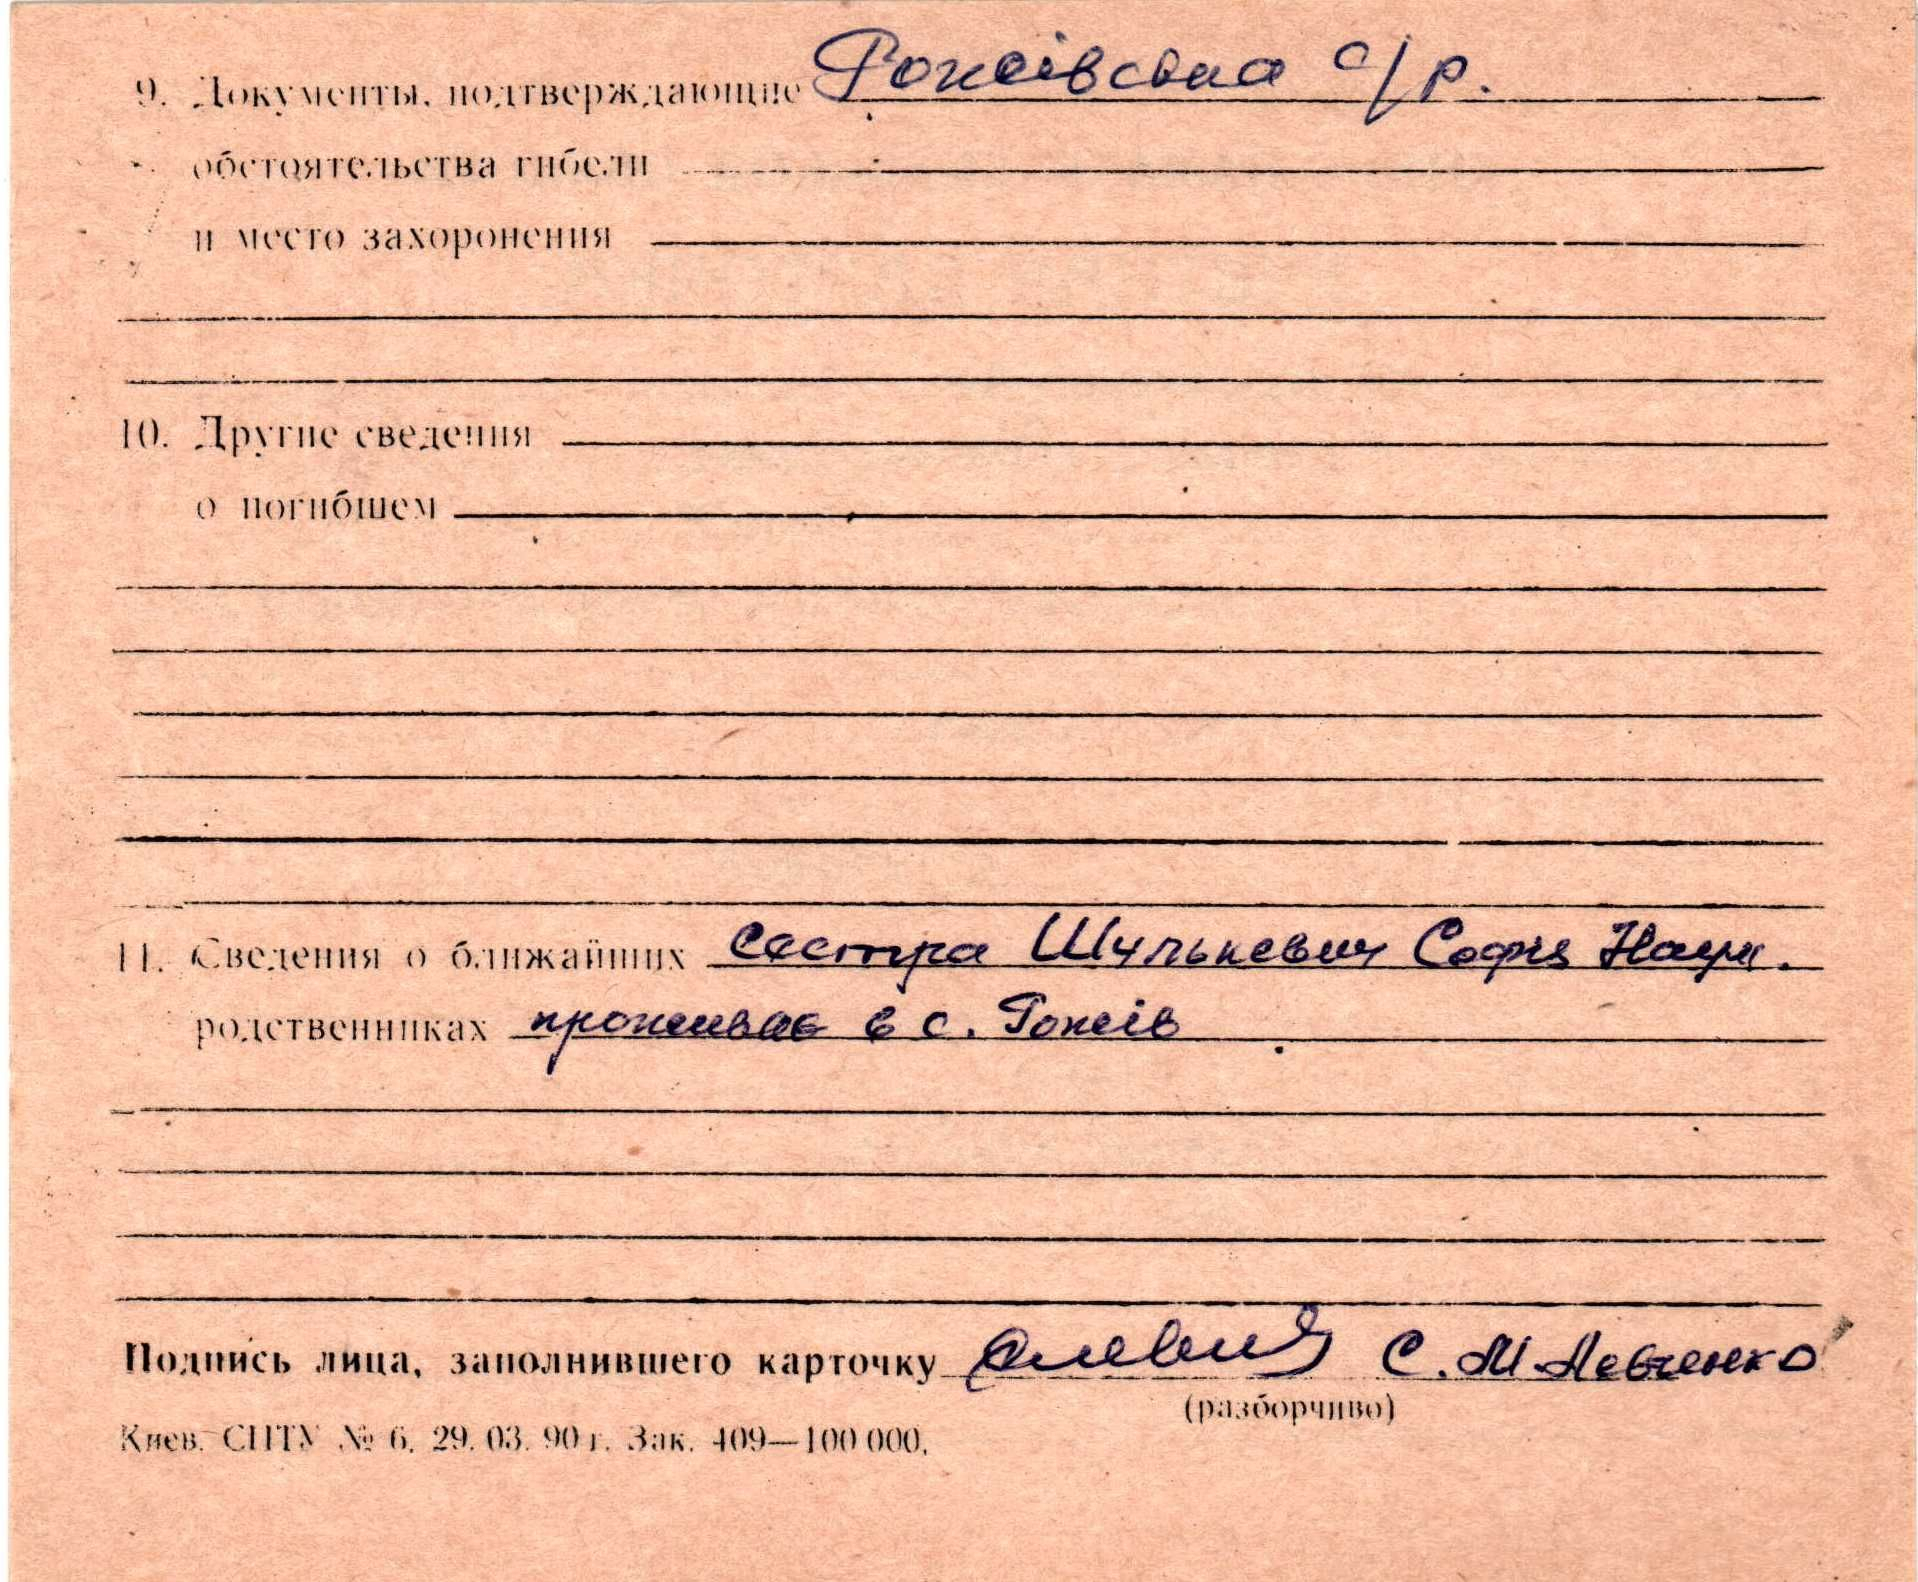 9. Документы, подтверждающие Рожівська с/р.
обстоятельства гибели
и место захоронения
10. Другие сведения
о погибшем
11. Сведения о ближайших сестра Шулькевич Софія Наум.
родственниках проживає в с. Рожів
Подпись лица, заполнившего карточку С. М. Левченко
(разборчиво)
Киев. СПТУ № 6. 29. 03. 90 г. Зак. 409—100 000.